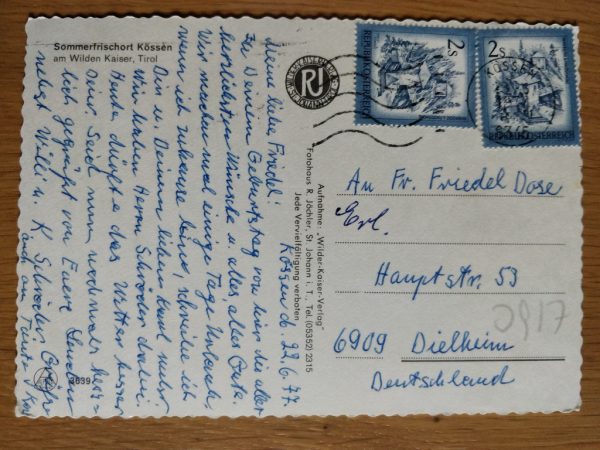 Sommerfrischort Kössen
am Wilden Kaiser, Tirol
Kössen d. 29.6.77
Meine liebe Friedel!
Zu Deinem Geburtstag von hier die aller
herzlichsten Wünsche u. alles alles Gute.
Wir machen mal einige Tage Urlaub,
wenn ich zuhause bin, schreibe ich
Dir u. Deinem lieben Karl mehr
Wir haben Herrn Schröder dabei
Heute dürfte das Wetter besser
sein. Seid nun nochmals herz-
lich gegrüßt von Eurer
nebst Willi u. K
Grüße
auch an Tante
3639
Aufnahme: „Wilder-Kaiser-Verlag"
Fotohaus R. Jöchler, St. Johann i. T., Tel. (05352) 2315
Jede Vervielfältigung verboten
RJ
REPUBLIK ÖSTERREICH
2s
REPUBLIK ÖSTERREICH
2s
KÖSSEN
An Fr. Friedel Dose
Erl.
Hauptstr. 53
6909 Dielheim
Deutschland